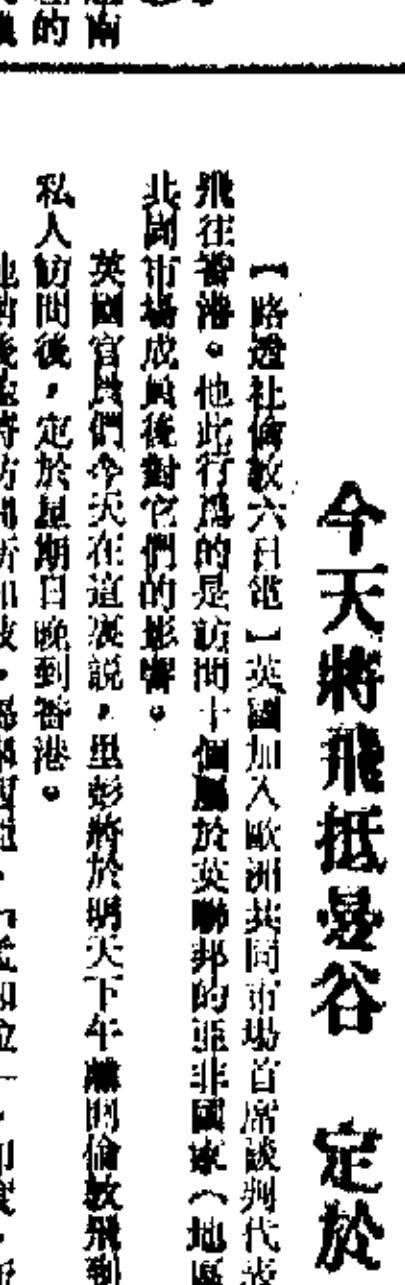 今天將飛抵曼谷 定於
【路透社倫敦六日電】英國加入歐洲共同市場首席談判代表
飛往香港。他此行爲的是訪問十個屬於英聯邦的亞非國家（地區
共同市場成員後對它們的影響。
英國官員們今天在這裏說，里彭將於明天下午離開倫敦飛到
私人訪問後，定於星期日晚到香港。